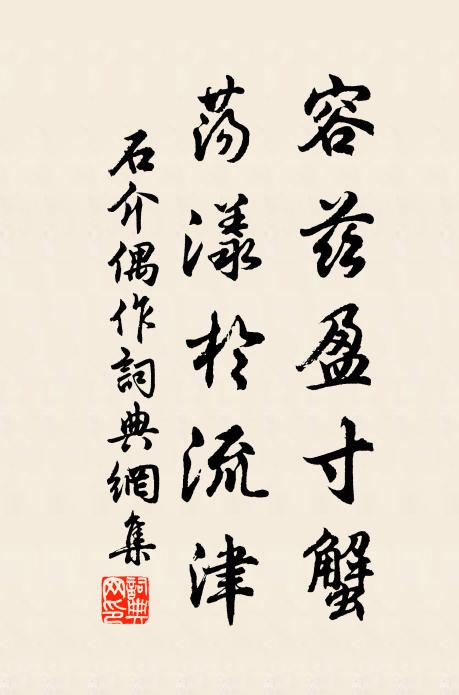 容茲盈寸蟹
蕩漾於流津
石介偶作詞典網集
詞典網印